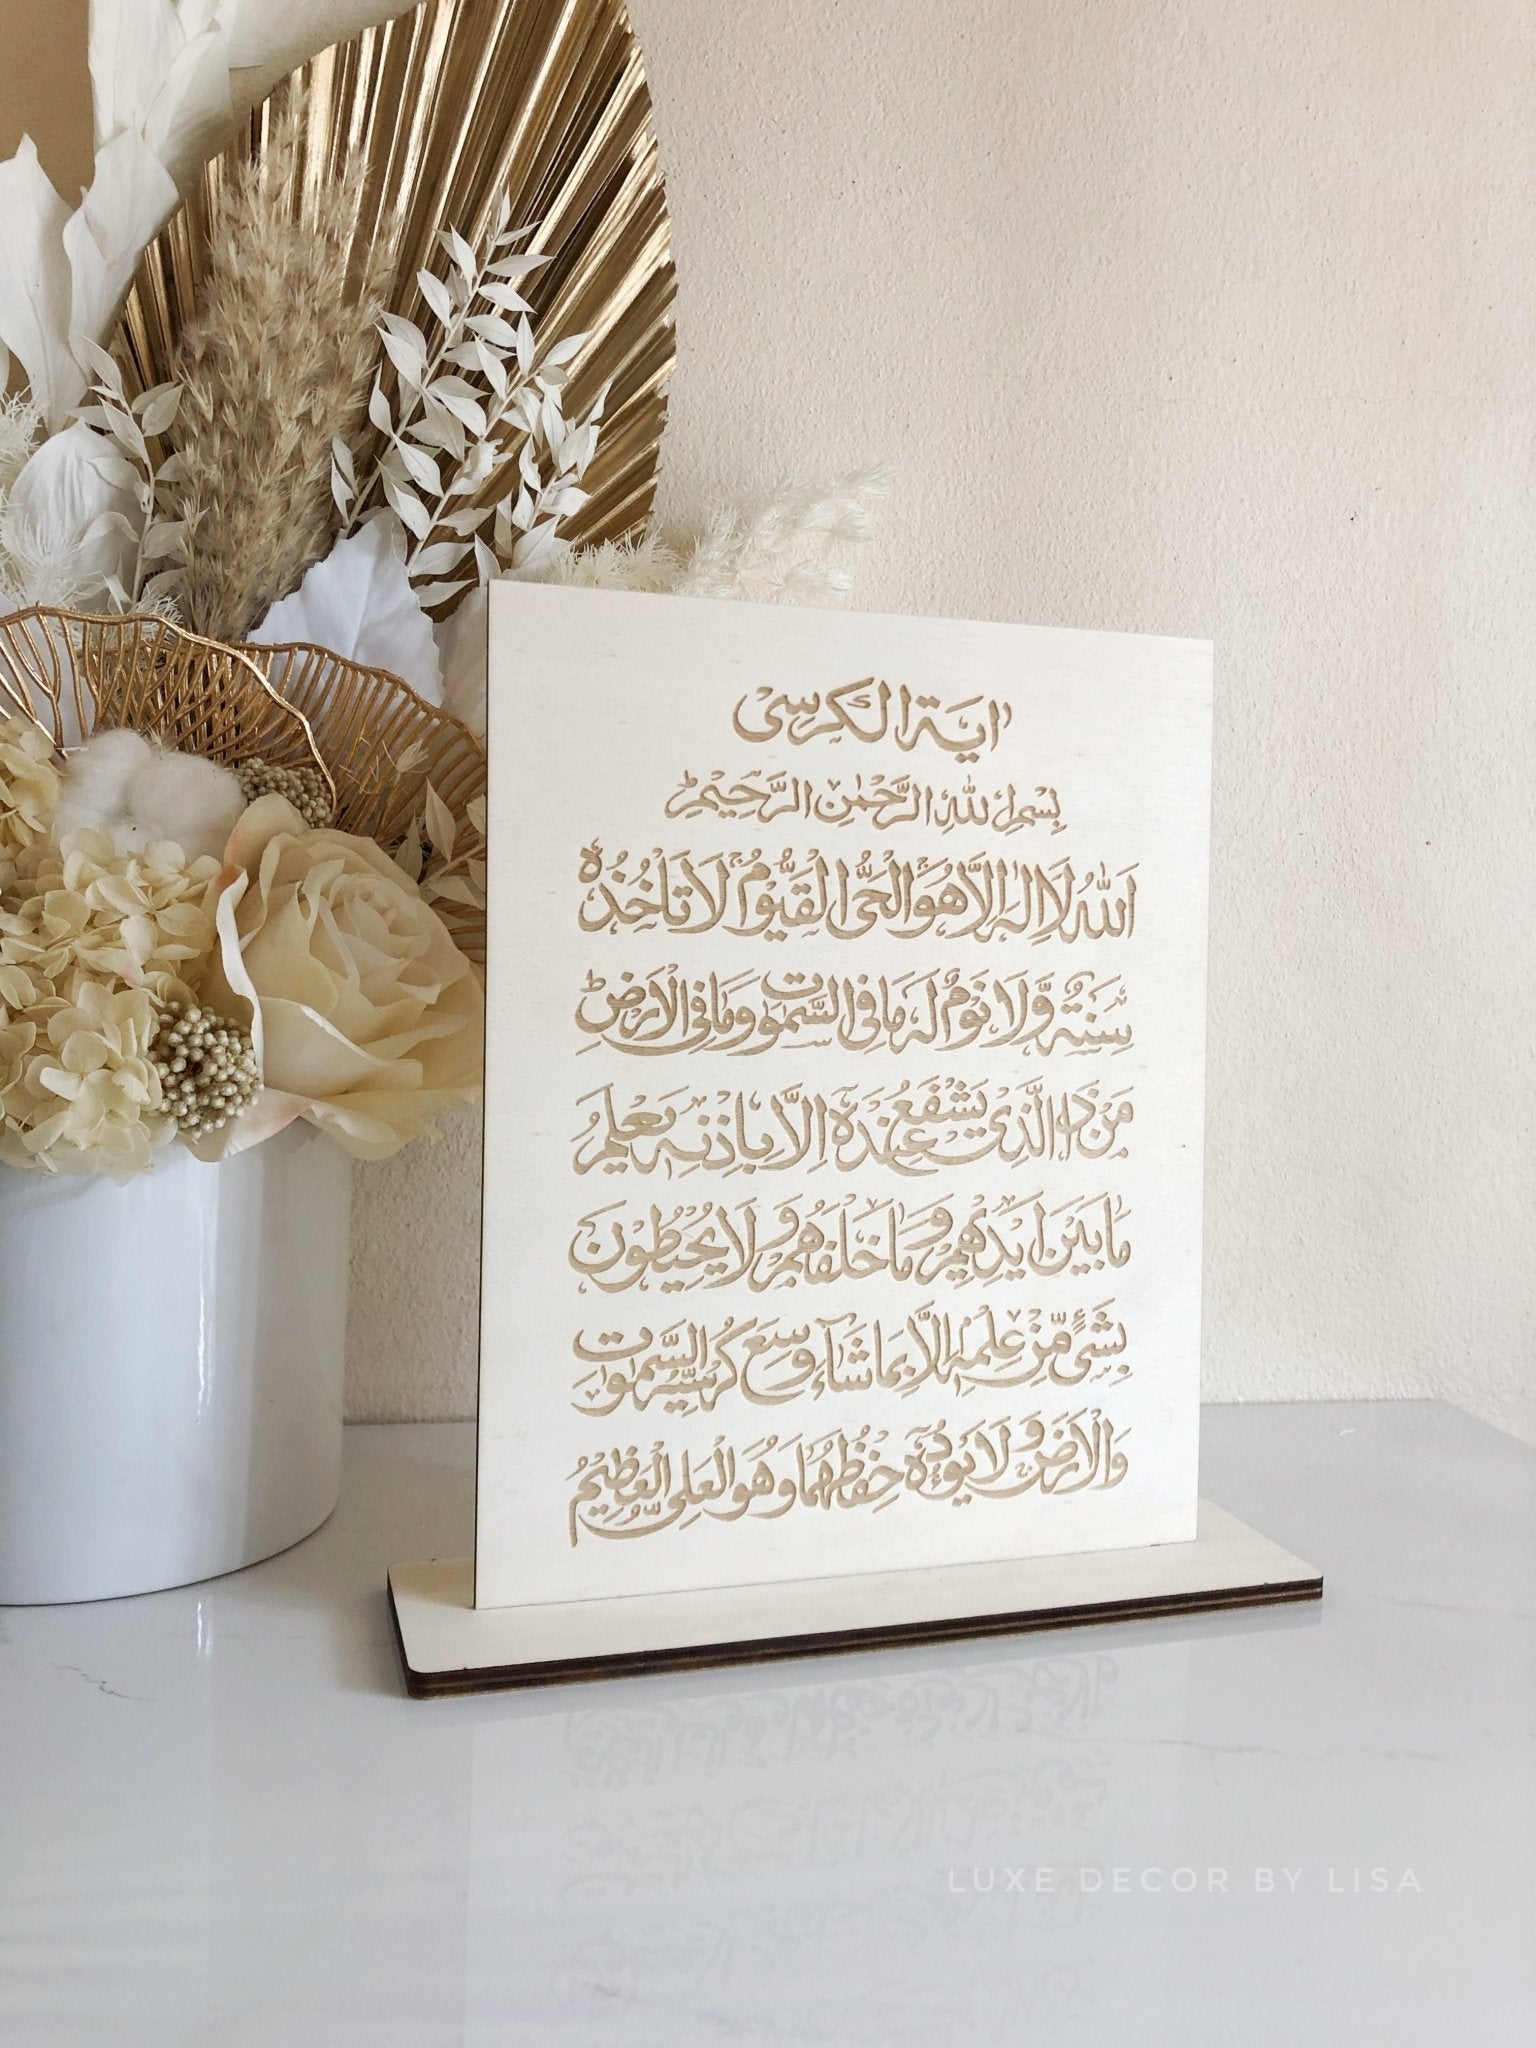 اية الكرسى
بِسْمِ اللهِ الرَّحْمٰنِ الرَّحِيْمِ
اَللّٰهُ لَاۤ اِلٰهَ اِلَّا هُوَ الْحَىُّ الْقَيُّوْمُ لَا تَاْخُذُهٗ
سِنَةٌ وَّلَا نَوْمٌ لَهٗ مَا فِى السَّمٰوٰتِ وَمَا فِى الْاَرْضِ
مَنْ ذَا الَّذِىْ يَشْفَعُ عِنْدَهٗۤ اِلَّا بِاِذْنِهٖ يَعْلَمُ
مَا بَيْنَ اَيْدِيْهِمْ وَمَا خَلْفَهُمْ وَلَا يُحِيْطُوْنَ
بِشَىْءٍ مِّنْ عِلْمِهٖۤ اِلَّا بِمَا شَآءَ وَسِعَ كُرْسِيُّهُ السَّمٰوٰتِ
وَالْاَرْضَ وَلَا يَـُٔوْدُهٗ حِفْظُهُمَا وَهُوَ الْعَلِىُّ الْعَظِيْمُ
LUXE DECOR BY LISA